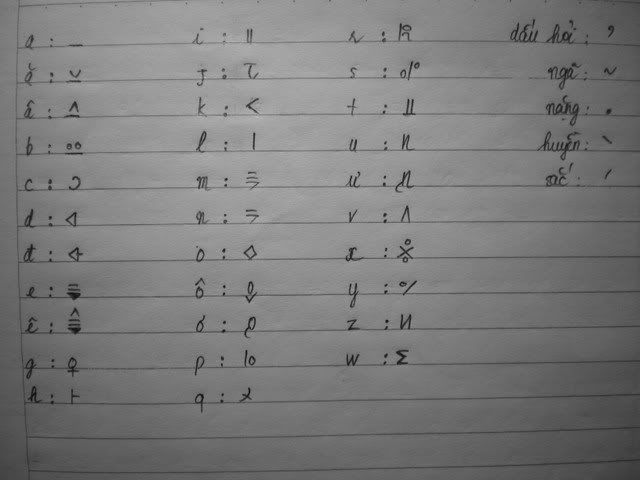 a : _
ă : ⌣
â : ^
b : oo
c : ɔ
d :
đ :
e :
ê :
g : ♀
h : ⊦
i : ॥
j : τ
k : <
l : |
m :
n :
o : ◇
ô :
ơ :
p : lo
q :
r :
s : o|o
t :
u : n
ư :
v : ʌ
x :
y : %
z : И
w : Σ
dấu hỏi : ̉
ngã : ~
nặng : .
huyền : `
sắc : ´